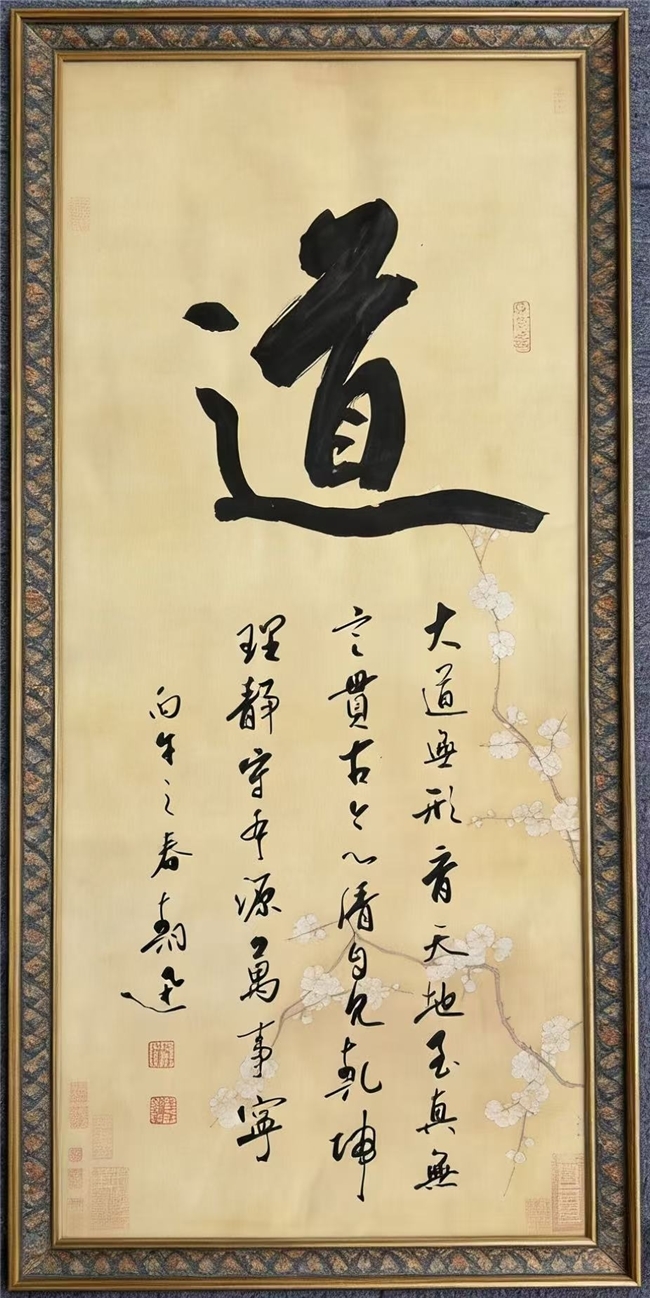 道
大道無形育天地至真無
言貫古今心清自見乾坤
理靜守本源萬事寧
丙午之春